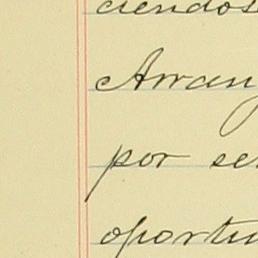 ciendos
Arran
por se
oportu